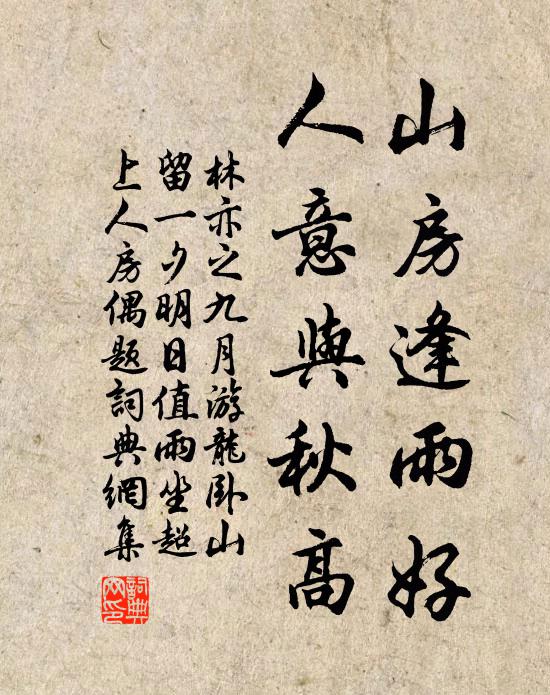 山房逢雨好
人意與秋高
林亦之九月游龍卧山
留一夕明日值雨坐超
上人房偶題詞典網集
詞典網印